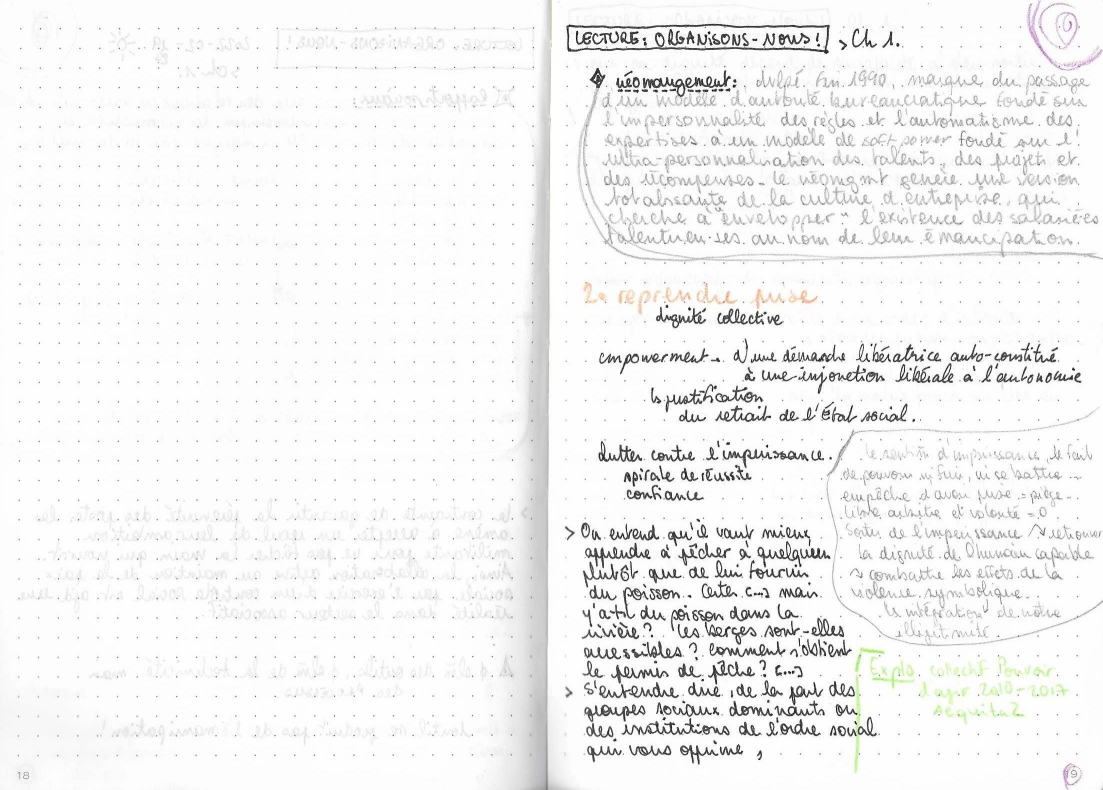 18
LECTURE: ORGANISONS-NOUS! > Ch 1.
néomangement: dvlpé fin 1990, marque du passage
d'un modèle d'autorité bureaucratique fondé sur
l'impersonnalité des règles et l'automatisme des
expertises à un modèle de soft power fondé sur l'
ultra-personnalisation des talents, des projets et
des récompenses. le néomgmt génère une version
totalisante de la culture d'entreprise, qui
cherche à "envelopper" l'existence des salarié·es
talentueu·ses au nom de leur émancipation.
2. reprendre prise
dignité collective
empowerment. d'une démarche libératrice auto-constitué
à une injonction libérale à l'autonomie
↳ justification
du retrait de l'État social.
Lutter contre l'impuissance.
spirale de réussite
confiance
le sentim d'impuissance, le fait
de pouvoir ni fuir, ni se battre
empêche d'avoir prise = piège.
libre arbitre et volonté = 0
Sortir de l'impuissance ↝ retrouver
la dignité de l'humain capable
↝ combattre les effets de la
violence symbolique.
↳ intégration de notre
illégitimité.
> On entend qu'il vaut mieux
apprendre à pêcher à quelqu'un
plutôt que de lui fournir
du poisson. Certes (...) mais
y'a-t-il du poisson dans la
rivière? les berges sont-elles
accessibles? Comment s'obtient
le permis de pêche? (...)
> S'entendre dire, de la part des
groupes sociaux dominants ou
des institutions de l'ordre social
qui vous opprime,
Explo collectif Pouvoir
d'agir 2010-2017
19